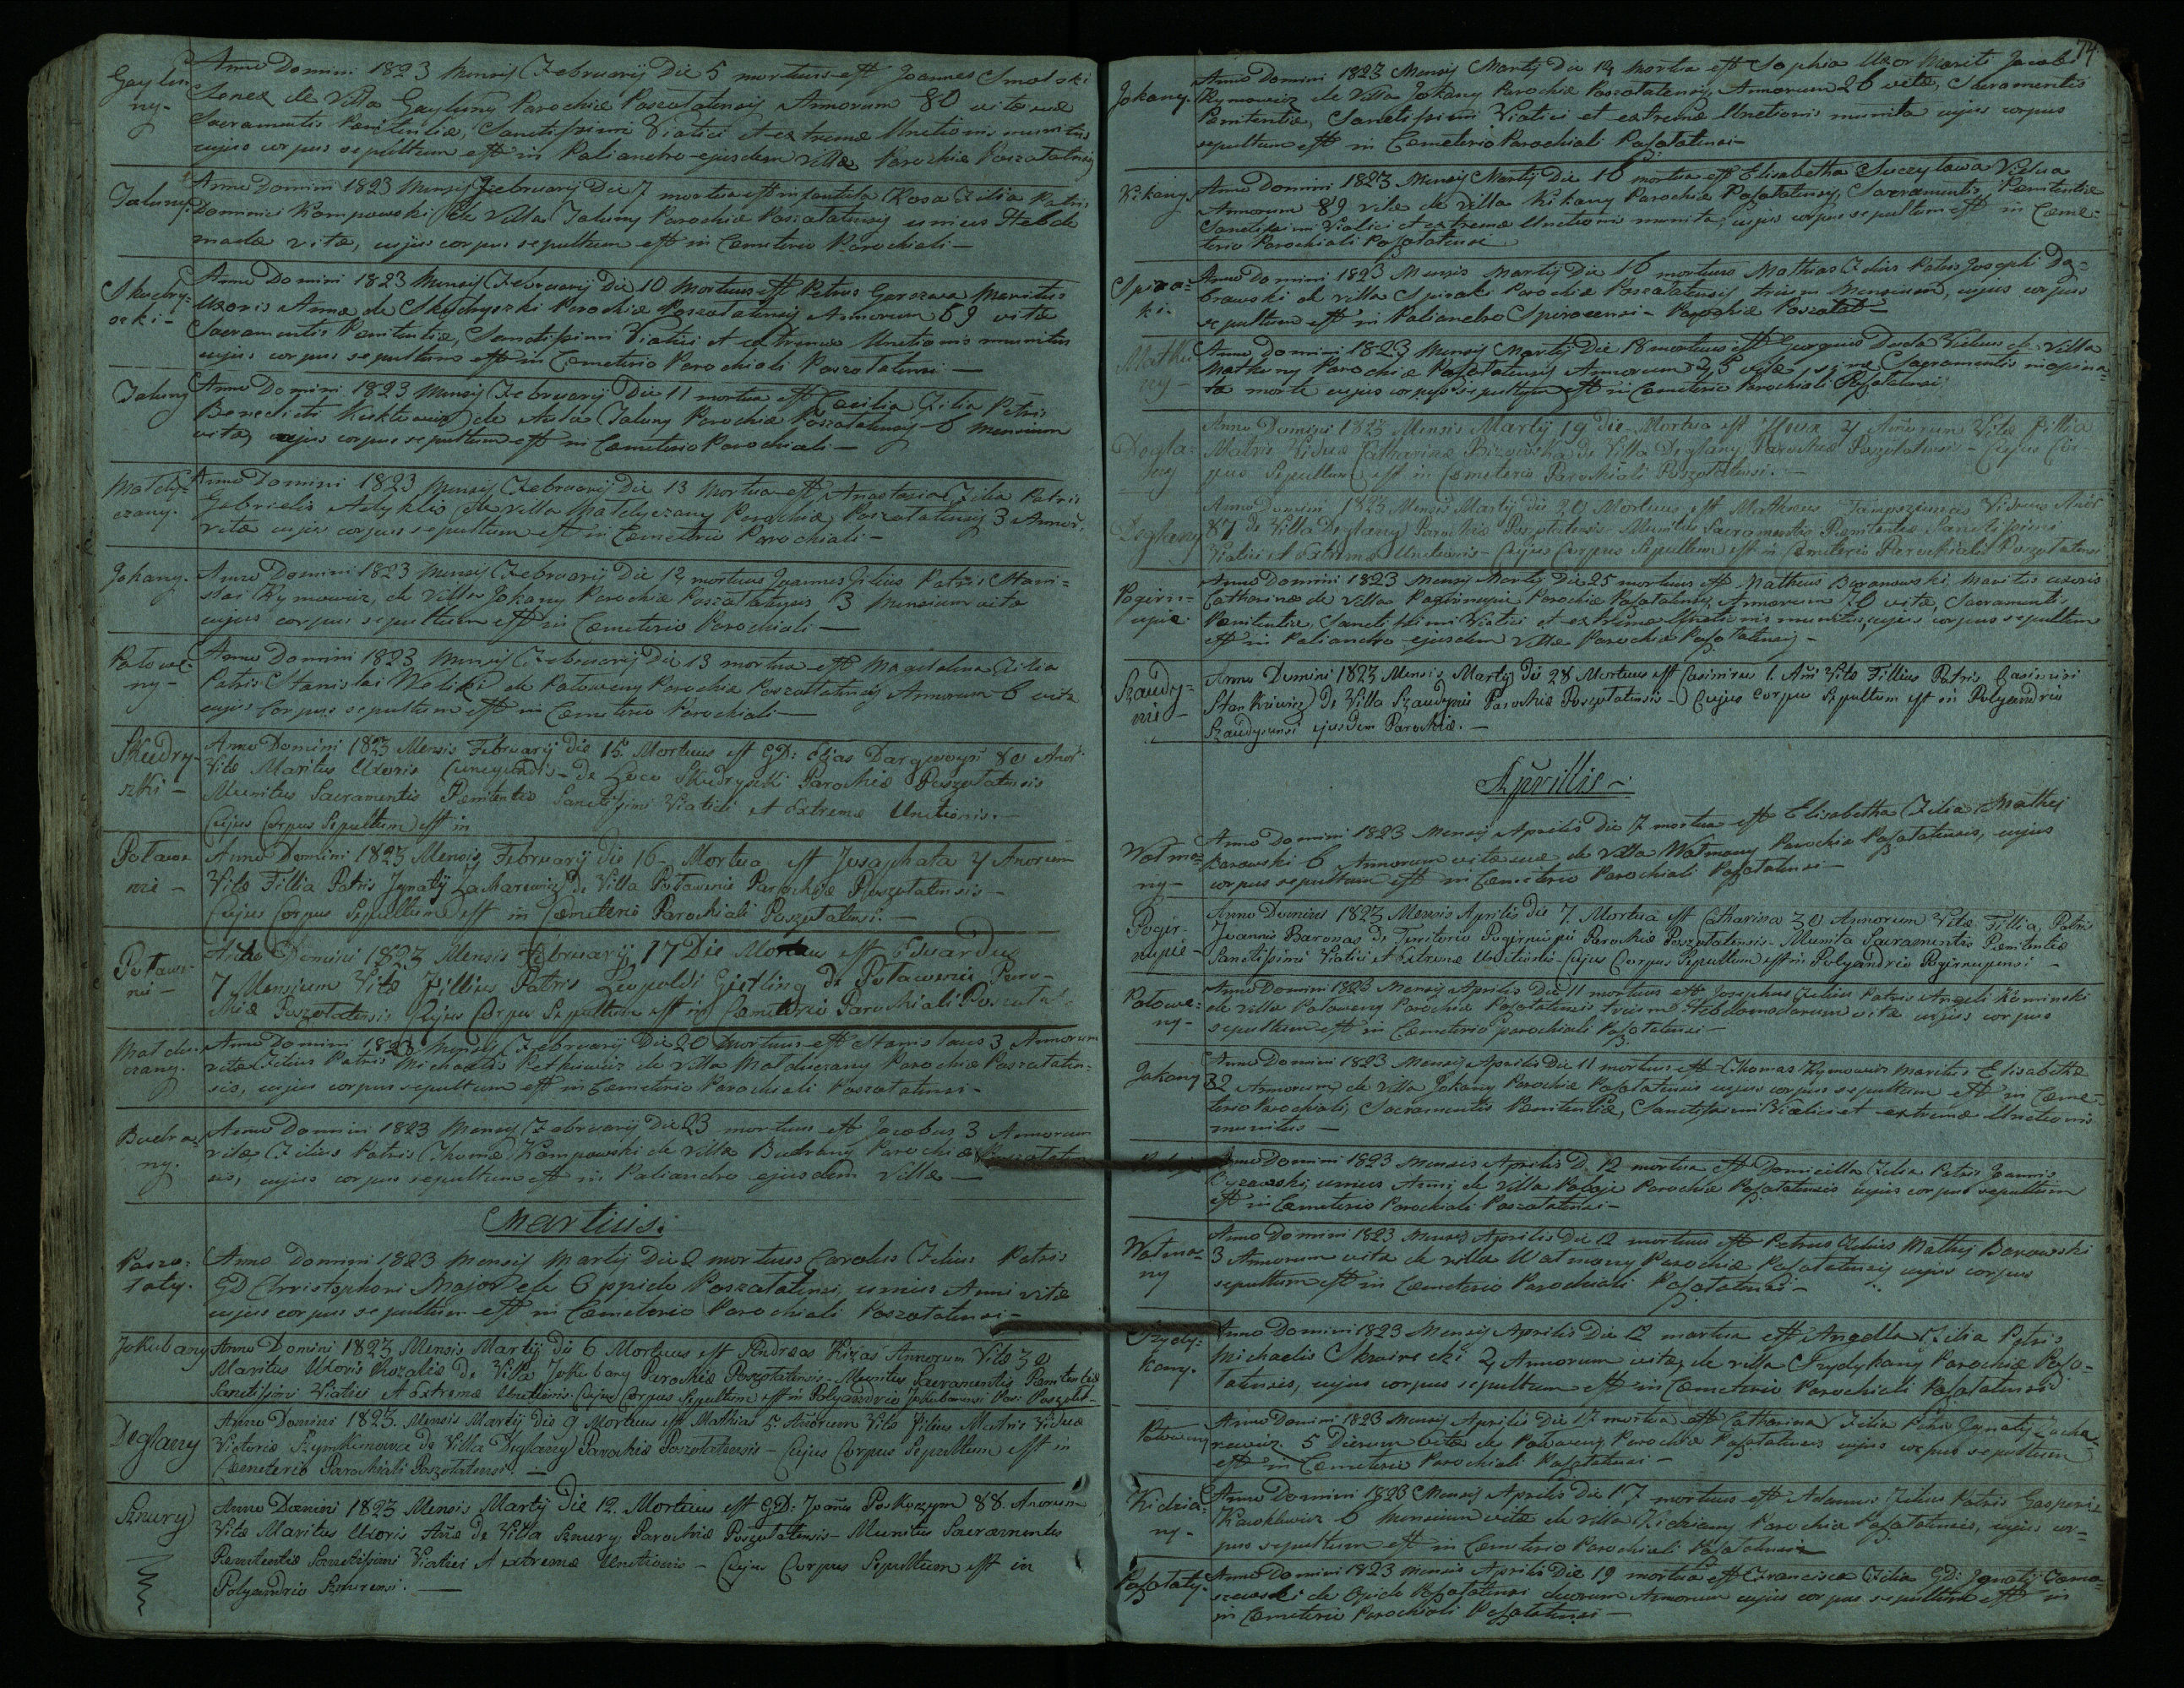 Gaylu-
ny-
Anno Domini 1823 Mensis Februarij Die 5 mortuus est Joannes
Senex de Villa Gayluny Parochiæ Poszołatensis Annorum 80 vitæ suæ
Sacramentis Pænitentiæ, Sanctissimi Viatici et extremæ Unctionis munitus
cujus corpus sepultum est in Paliandro ejusdem Villæ Parochiæ Poszołatensis
Jaluny
Anno Domini 1823 Mensis Februarij Die 7 mortua est infantula Rosa Filia Patris
Dominici Kompowski de Villa Jaluny Parochiæ Poszołatensis unius Hebdo
madæ vitæ, cujus corpus sepultum est in Cæmeterio Parochiali-
Skudry-
szki-
Anno Domini 1823 Mensis Februarij Die 10 Mortuus est Petrus Maritus
Uxoris Annæ de Skudryszki Parochiæ Poszołatensis Annorum 69 vitæ
Sacramentis Pænitentiæ, Sanctissimi Viatici et extremæ Unctionis munitus
cujus corpus sepultum est in Cæmeterio Parochiali Poszołatensi-
Jaluny
Anno Domini 1823 Mensis Februarij Die 11 mortua est Cæcilia Filia Patris
Benedicti de Aula Jaluny Parochiæ Poszołatensis 6 Mensium
vitæ, cujus corpus sepultum est in Cæmeterio Parochiali-
Matdy-
czany.
Anno Domini 1823 Mensis Februarij Die 13 Mortua est Anastasia Filia Patris
Gabrielis de Villa Matdyczany Parochiæ Poszołatensis 3 Annor:
vitæ cujus corpus sepultum est in Cæmeterio Parochiali-
Jokany.
Anno Domini 1823 Mensis Februarij Die 14 mortuus Joannes Filius Patris Stani-
slai Rymowicz, de Villa Jokany Parochiæ Poszołatensis 3 Mensium vitæ
cujus corpus sepultum est in Cæmeterio Parochiali-
Połowe-
ny-
Anno Domini 1823 Mensis Februarij Die 13 mortua est Magdalena Filia
Patris Stanislai de Połoweny Parochiæ Poszołatensis Annorum 6 vitæ
cujus Corpus sepultum est in Cæmeterio Parochiali-
Skudry-
szki-
Anno Domini 1823 Mensis Februarij die 15 Mortuus est GD: Elias 80 Anor:
Vitæ Maritus Uxoris Cunegundis- de Loco Skudryszki Parochiæ Poszołatensis
Munitus Sacramentis Pænitentiæ Sanctissimi Viatici et Extremæ Unctionis.-
Cujus Corpus Sepultum est in
Poławe
nie-
Anno Domini 1823 Mensis Februarij die 16 Mortua est Josaphata 4 Anorum
Vitæ Fillia Patris Jgnatij Zacharewicz De Villa Poławenie Parochiæ Poszołatensis-
Cujus Corpus Sepultum est in Cæmeterio Parochiali Poszołatensi.-
Poławe-
nie-
Anno Domini 1823 Mensis Februarij 17 Die Mortuus est Eduardus
7 Mensium Vitæ Fillius Patris Leopoldi Giedling de Poławenie Paro-
chiæ Poszołatensis Cujus Corpus Sepultum est in Cæmeterio Parochiali Poszołat-
Matdu-
czany.
Anno Domini 1823 Mensis Februarij Die 20 Mortuus est Stanislaus 3 Annorum
vitæ Filius Patris Michaelis Petkiewicz de Villa Matduczany Parochiæ Poszołaten-
sis, cujus corpus sepultum est in Cæmeterio Parochiali Poszołatensi-
Budra-
ny.
Anno Domini 1823 Mensis Februarij Die 23 mortuus est Jacobus 3 Annorum
vitæ, Filius Patris Thomæ Kampowski de Villa Budrany Parochiæ Poszołaten
sis, cujus corpus sepultum est in Paliandro ejusdem Villæ-
Martius:
Poszo-
łaty.
Anno Domini 1823 Mensis Martij Die 2 mortuus Carolus Filius Patris
GD Christophori Major de Oppido Poszołatensi, unius Anni vitæ
cujus corpus sepultum est in Cæmeterio Parochiali Poszołatensi-
Jokubany
Anno Domini 1823 Mensis Martij die 6 Mortuus est Andreas Kizas Annorum Vitæ 30
Maritus Uxoris Rozaliæ De Villa Jokubany Parochiæ Poszołatensis- Munitus Sacramentis Pænitentiæ
Sanctissimi Viatici et Extremæ Unctionis. Cujus Corpus Sepultum est in Polyandrio Jokubanensi Par: Poszołat-
Deglany
Anno Domini 1823. Mensis Martij die 9 Mortuus est Mathias 5. Anorum Vitæ Filius Matris Viduæ
Victoriæ Szymkunowa De Villa Deglany Parochiæ Poszołatensis- Cujus Corpus Sepultum est in
Cæmeterio Parochiali Poszołatensi.-
Sznury
Anno Domini 1823 Mensis Martij Die 12. Mortuus est GD: Joañes Poskoczym 88. Anorum
Vitæ Maritus Uxoris Añæ de Villa Sznury Parochiæ Poszołatensis- Munitus Sacramentis
Pænitentiæ Sanctissimi Viatici et extremæ Unctionis- Cujus Corpus Sepultum est in
Polyandrio Sznurensi.-
74.
Jokany.
Anno Domini 1823 Mensis Martij Die 14 Mortua est Sophia Uxor Mariti Jacobi
Rymowicz de Villa Jokany Parochiæ Poszołatensis, Annorum 26 vitæ, Sacramentis
Pænitentiæ, Sanctissimi Viatici et extremæ Unctionis munita cujus corpus
sepultum est in Cæmeterio Parochiali Poszołatensi-
Kikany.
Anno Domini 1823 Mensis Martij Die 16 mortua est Elisabetha Vidua
Annorum 89 vitæ de Villa Kikany Parochiæ Poszołatensis, Sacramentis, Pænitentiæ
Sanctissimi Viatici et extremæ Unctionis munita, cujus corpus sepultum est in Cæme-
terio Parochiali Poszołatensi
Spira-
ki-
Anno Domini 1823 Mensis Martij Die 16 mortuus Mathias Filius Patris Josephi Dą-
browski de Villa Spiraki Parochiæ Poszołatensis trium Mensium, cujus corpus
sepultum est in Paliandro Spiracensi- Parochiæ Poszołat-
Matku
ny-
Anno Domini 1823 Mensis Martij Die 18 mortuus est Georgius Duda Viduus de Villa
Matkuny Parochiæ Poszołatensis Annorum 45 vitæ, sine Sacramentis inopina-
ta morte cujus corpus sepultum est in Cæmeterio Parochiali Poszołatensi.
Degla-
ny
Anno Domini 1823 Mensis Martij 19 die Mortua est 4 Añorum Vitæ Fillia
Matris Viduæ Catharinæ de Villa Deglany Parochiæ Poszołatensis- Cujus Cor-
pus Sepultum est in Cæmeterio Parochiali Poszołatensi.-
Deglany
Anno Domini 1823 Mensis Martij die 20 Mortuus est Matheus Viduus Anor:
87 de Villa Deglany Parochiæ Poszołatensis Munitus Sacramentis Pænitentiæ Sanctissimi
Viatici et Extremæ Unctionis- Cujus Corpus Sepultum est in Cæmeterio Parochiali Poszołatensi
Pogirn-
upie
Anno Domini 1823 Mensis Martij Die 25 mortuus est Matheus Baranowski Maritus uxoris
Catharinæ de Villa Pogirnupie Parochiæ Poszołatensis, Annorum 70 vitæ, Sacramentis
Pænitentiæ, Sanctissimi Viatici et extremæ Unctionis munitus, cujus corpus sepultum
est in Paliandro ejusdem Villæ Parochiæ Poszołatensis-
Szaudy-
nie-
Anno Domini 1823 Mensis Martij die 28 Mortuus est Casimirus 1. Añi Vitæ Fillius Patris Casimiri
Stankiewicz De Villa Szaudynie Parochiæ Poszołatensis- Cujus Corpus Sepultum est in Polyandrio
Szaudynensi ejusdem Parochiæ.-
Aprillis-
Watma-
ny-
Anno Domini 1823 Mensis Aprilis Die 7 mortua est Elisabetha Filia Mathej
Barowski 6 Annorum vitæ suæ de Villa Watmany Parochiæ Poszołatensis, cujus
corpus sepultum est in Cæmeterio Parochiali Poszołatensi-
Pogir-
nupie-
Anno Domini 1823 Mensis Aprilis die 7. Mortua est Catharina 30 Annorum Vitæ Fillia Patris
Joannis Baronas de Territorio Pogirnupie Parochiæ Poszołatensis- Munita Sacramentis Pænitentiæ
Sanctissimi Viatici et Extremæ Unctionis- Cujus Corpus Sepultum est in Polyandrio Pogirnupensi-
Połowe-
ny-
Anno Domini 1823 Mensis Aprilis Die 11 mortuus est Josephus Filius Patris Angeli Kominski
de Villa Połoweny Parochiæ Poszołatensis trium Hebdomadarum vitæ cujus corpus
sepultum est in Cæmeterio parochiali Poszołatensi-
Jokany
Anno Domini 1823 Mensis Aprilis Die 11 mortuus est Thomas Rymowicz Maritus Elisabethæ
82 Annorum, de Villa Jokany Parochiæ Poszołatensis cujus corpus sepultum est in Cæme-
terio Parochiali, Sacramentis Pænitentiæ, Sanctissimi Viatici et extremæ Unctionis
munitus-
Anno Domini 1823 Mensis Aprilis D. 12 mortua est Domicilla Filia Patris Joannis
unius Anni de Villa Parochiæ Poszołatensis cujus corpus sepultum
est in Cæmeterio Parochiali Poszołatensi-
Watma-
ny
Anno Domini 1823 Mensis Aprilis Die 12 mortuus est Petrus Filius Mathej Barowski
3 Annorum vitæ de Villa Watmany Parochiæ Poszołatensis cujus corpus
sepultum est in Cæmeterio Parochiali Poszołatensi-
Frydy-
kany.
Anno Domini 1823 Mensis Aprilis Die 12 mortua est Angella Filia Patris
Michaelis 2 Annorum vitæ, de Villa Frydykany Parochiæ Poszo-
łatensis, cujus corpus sepultum est in Cæmeterio Parochiali Poszołatensi
Połoweny
Anno Domini 1823 Mensis Aprilis Die 17 mortua est Catharina Filia Patris Jgnatij Zacha-
rewicz 5 Dierum vitæ de Połoweny Parochiæ Poszołatensis cujus corpus sepultum
est in Cæmeterio Parochiali Poszołatensi-
Kidzia-
ny-
Anno Domini 1823 Mensis Aprilis Die 17 mortuus est Adamus Filius Patris Gasparis
6 Mensium vitæ de Villa Kidziany Parochiæ Poszołatensis, cujus cor-
pus sepultum est in Cæmeterio Parochiali Poszołatensi
Poszołaty.
Anno Domini 1823 Mensis Aprilis Die 19 mortua est Francisca Filia GD: Jgnatij Toma-
szewski de Opido Poszołatensi duorum Annorum cujus corpus sepultum est in
in Cæmeterio Parochiali Poszołatensi-